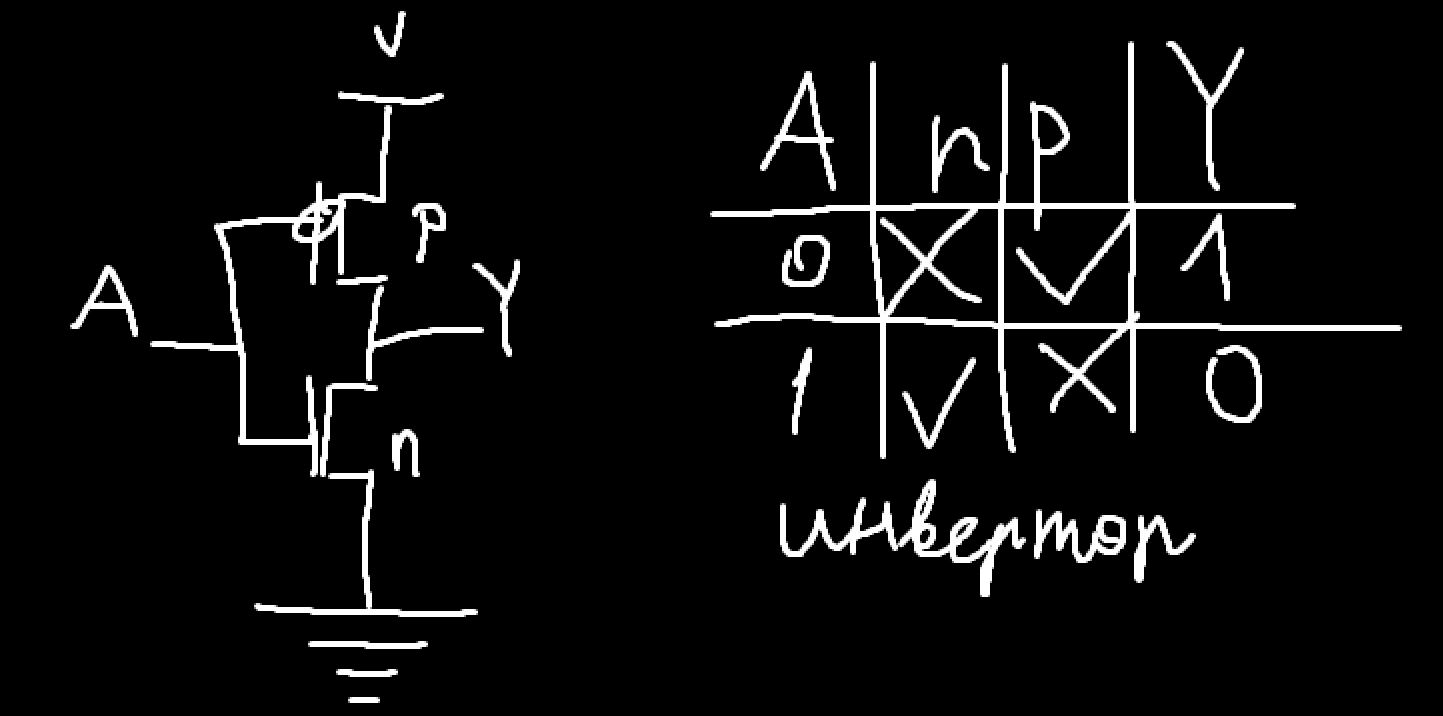 V
p
A
Y
n
A n p Y
0 X ✓ 1
1 ✓ X 0
инвертор